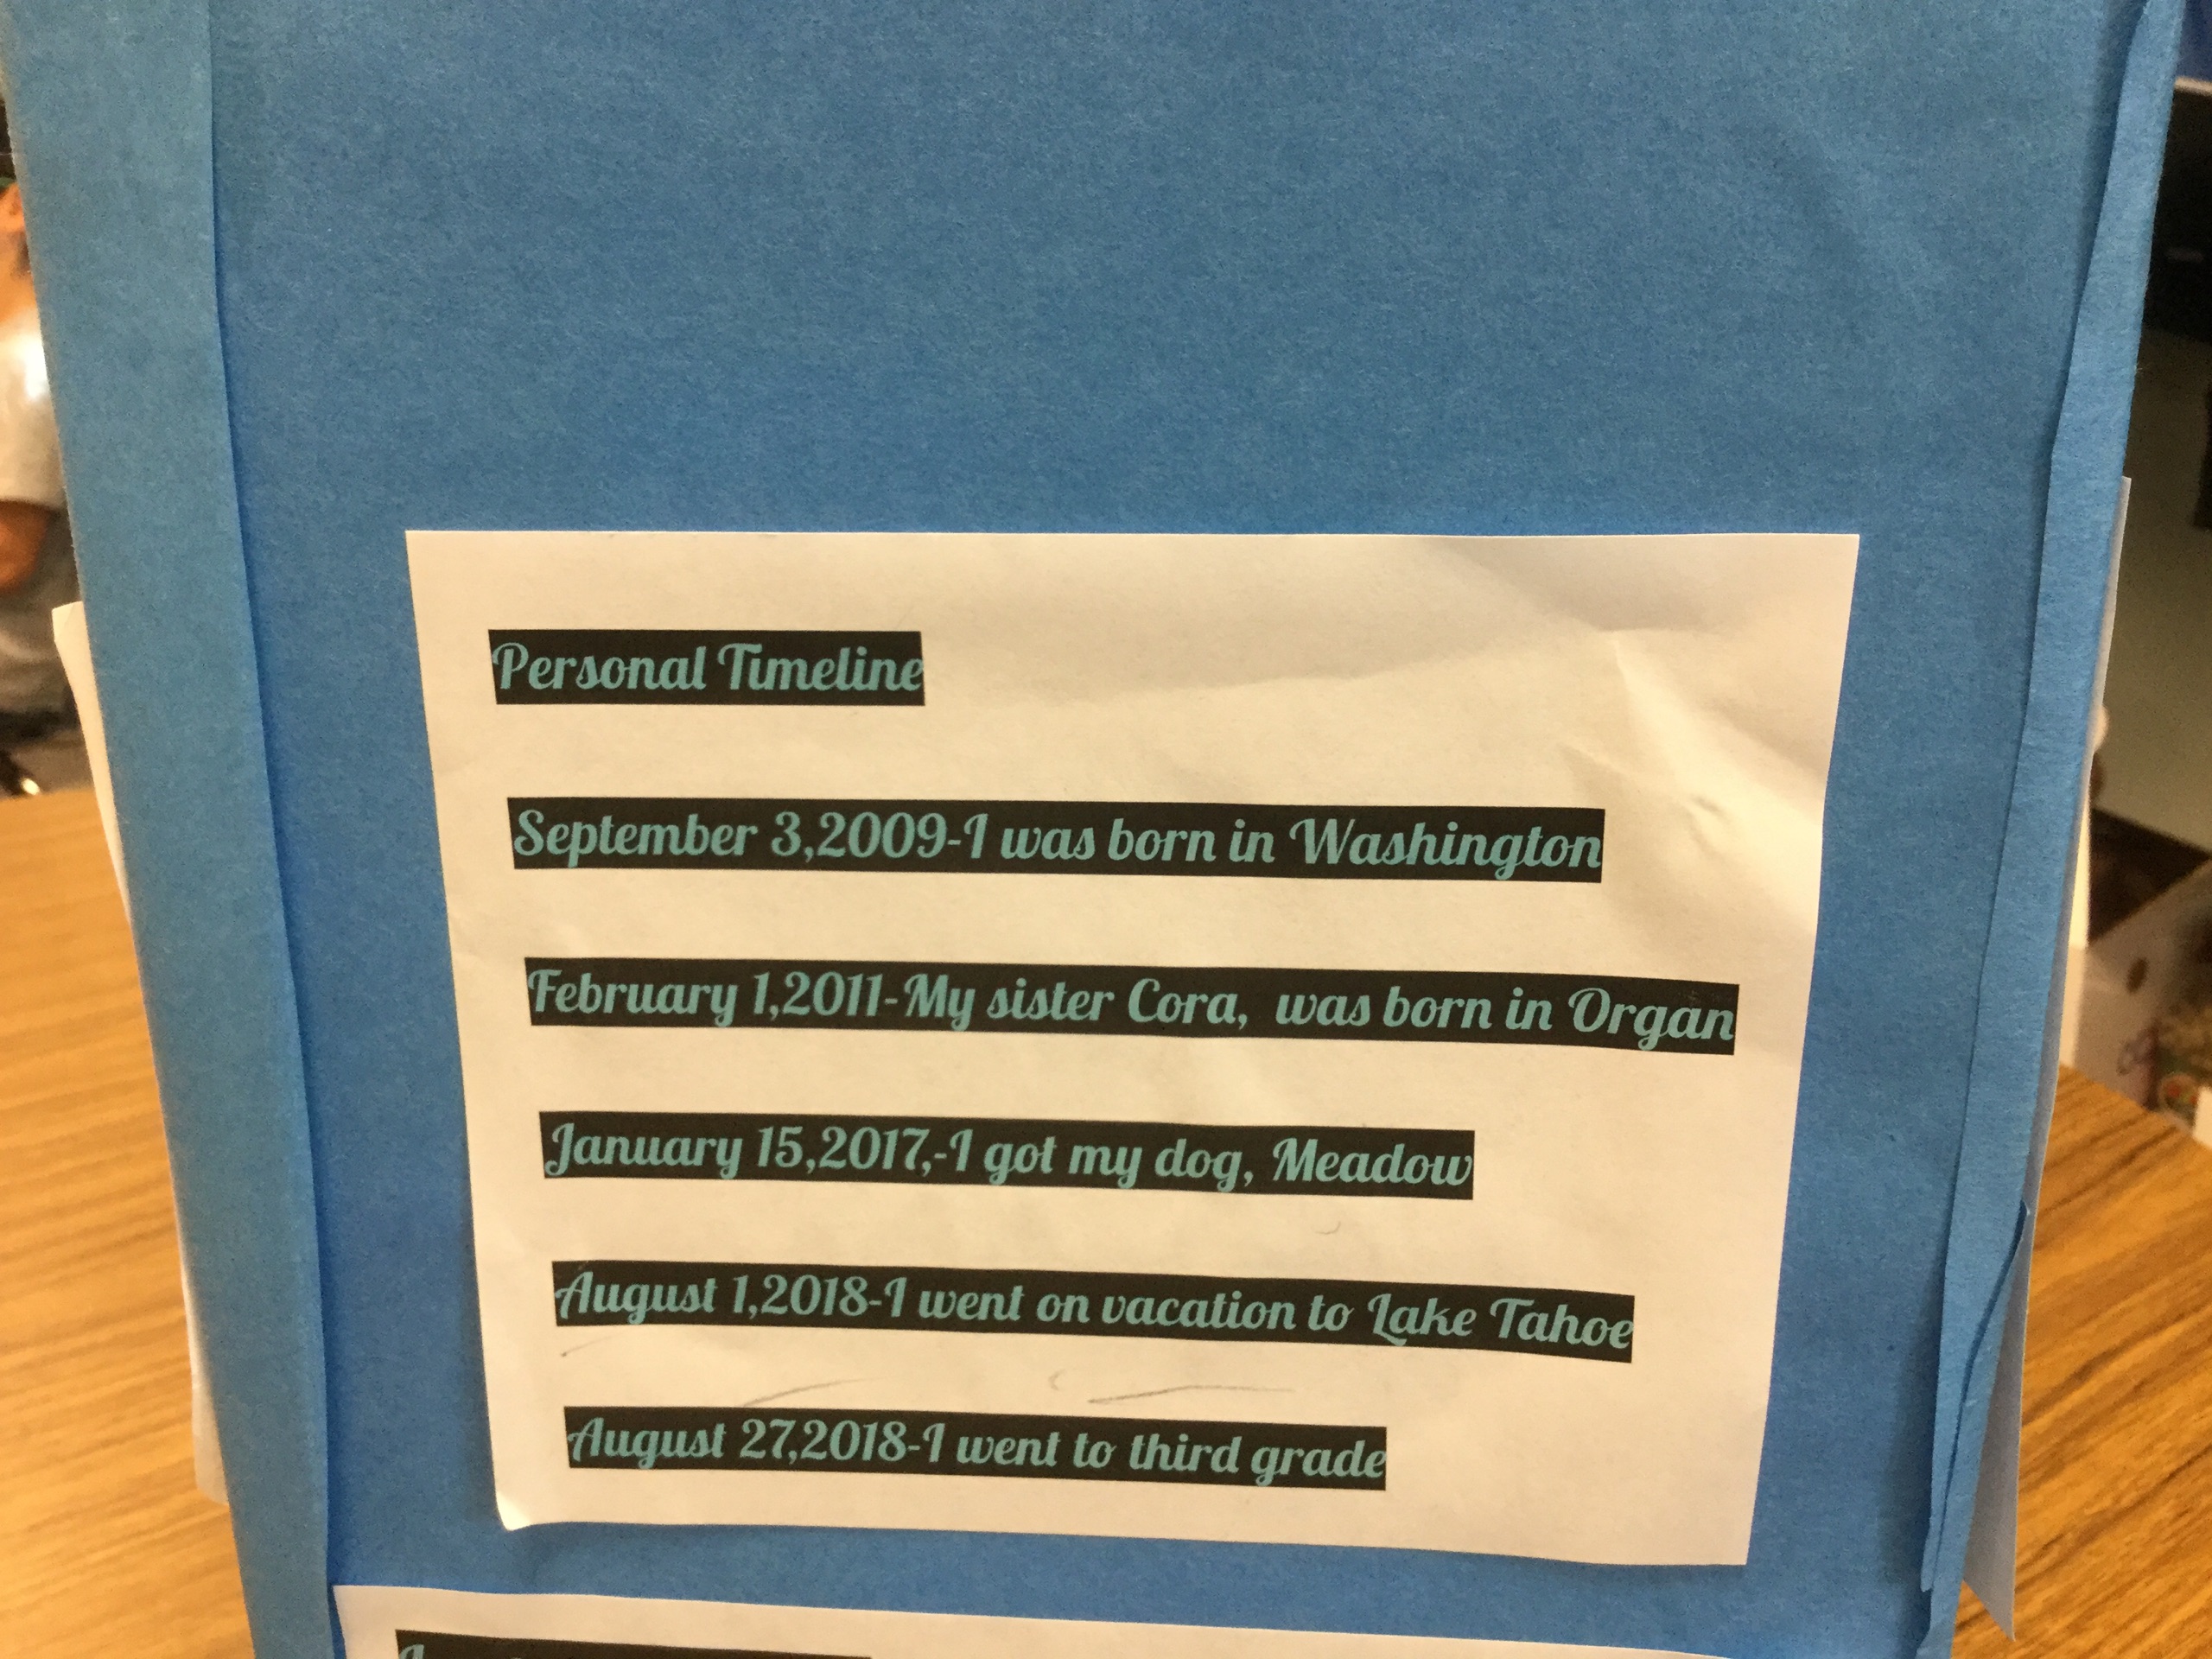 Personal Timeline
September 3,2009-I was born in Washington
February 1,2011-My sister Cora,  was born in Organ
January 15,2017,-I got my dog, Meadow
August 1,2018-I went on vacation to Lake Tahoe
August 27,2018-I went to third grade